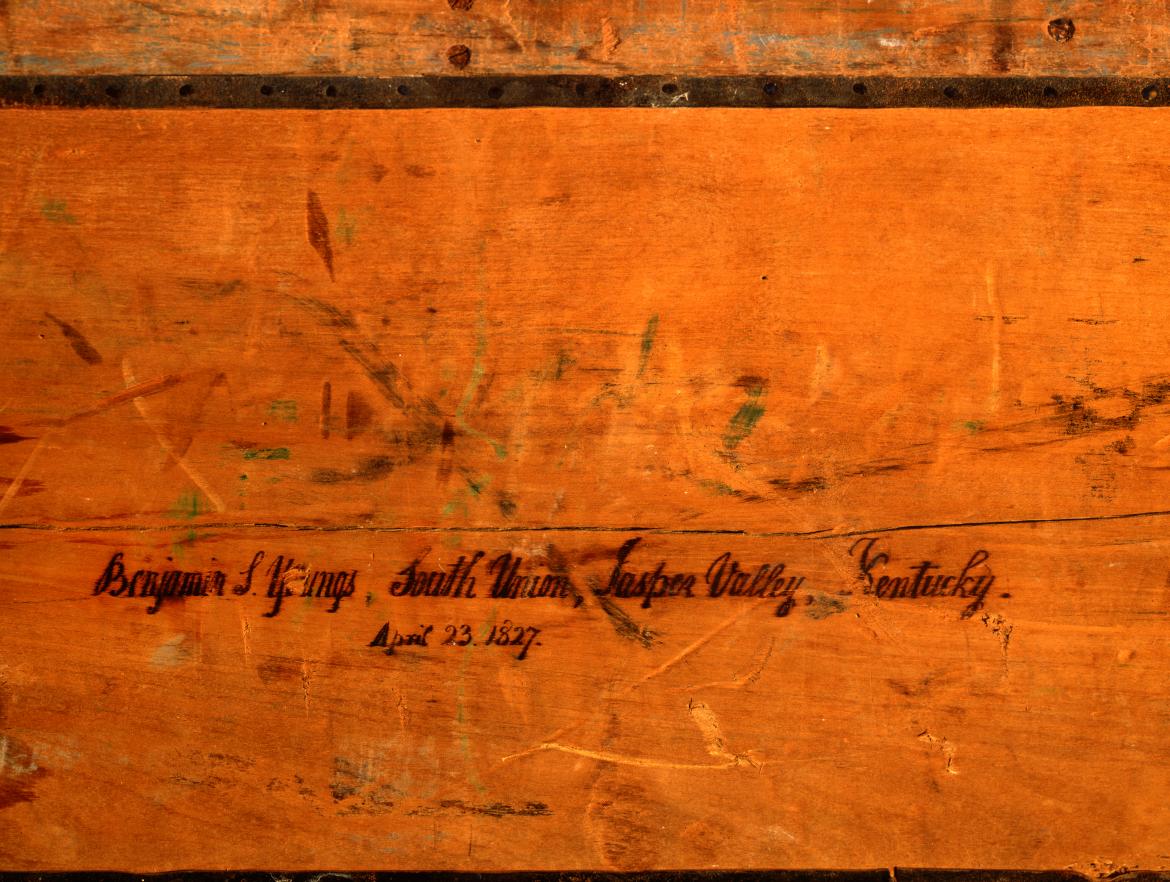 Benjamin S. Youngs, South Union, Jasper Valley, Kentucky.
April 23. 1827.